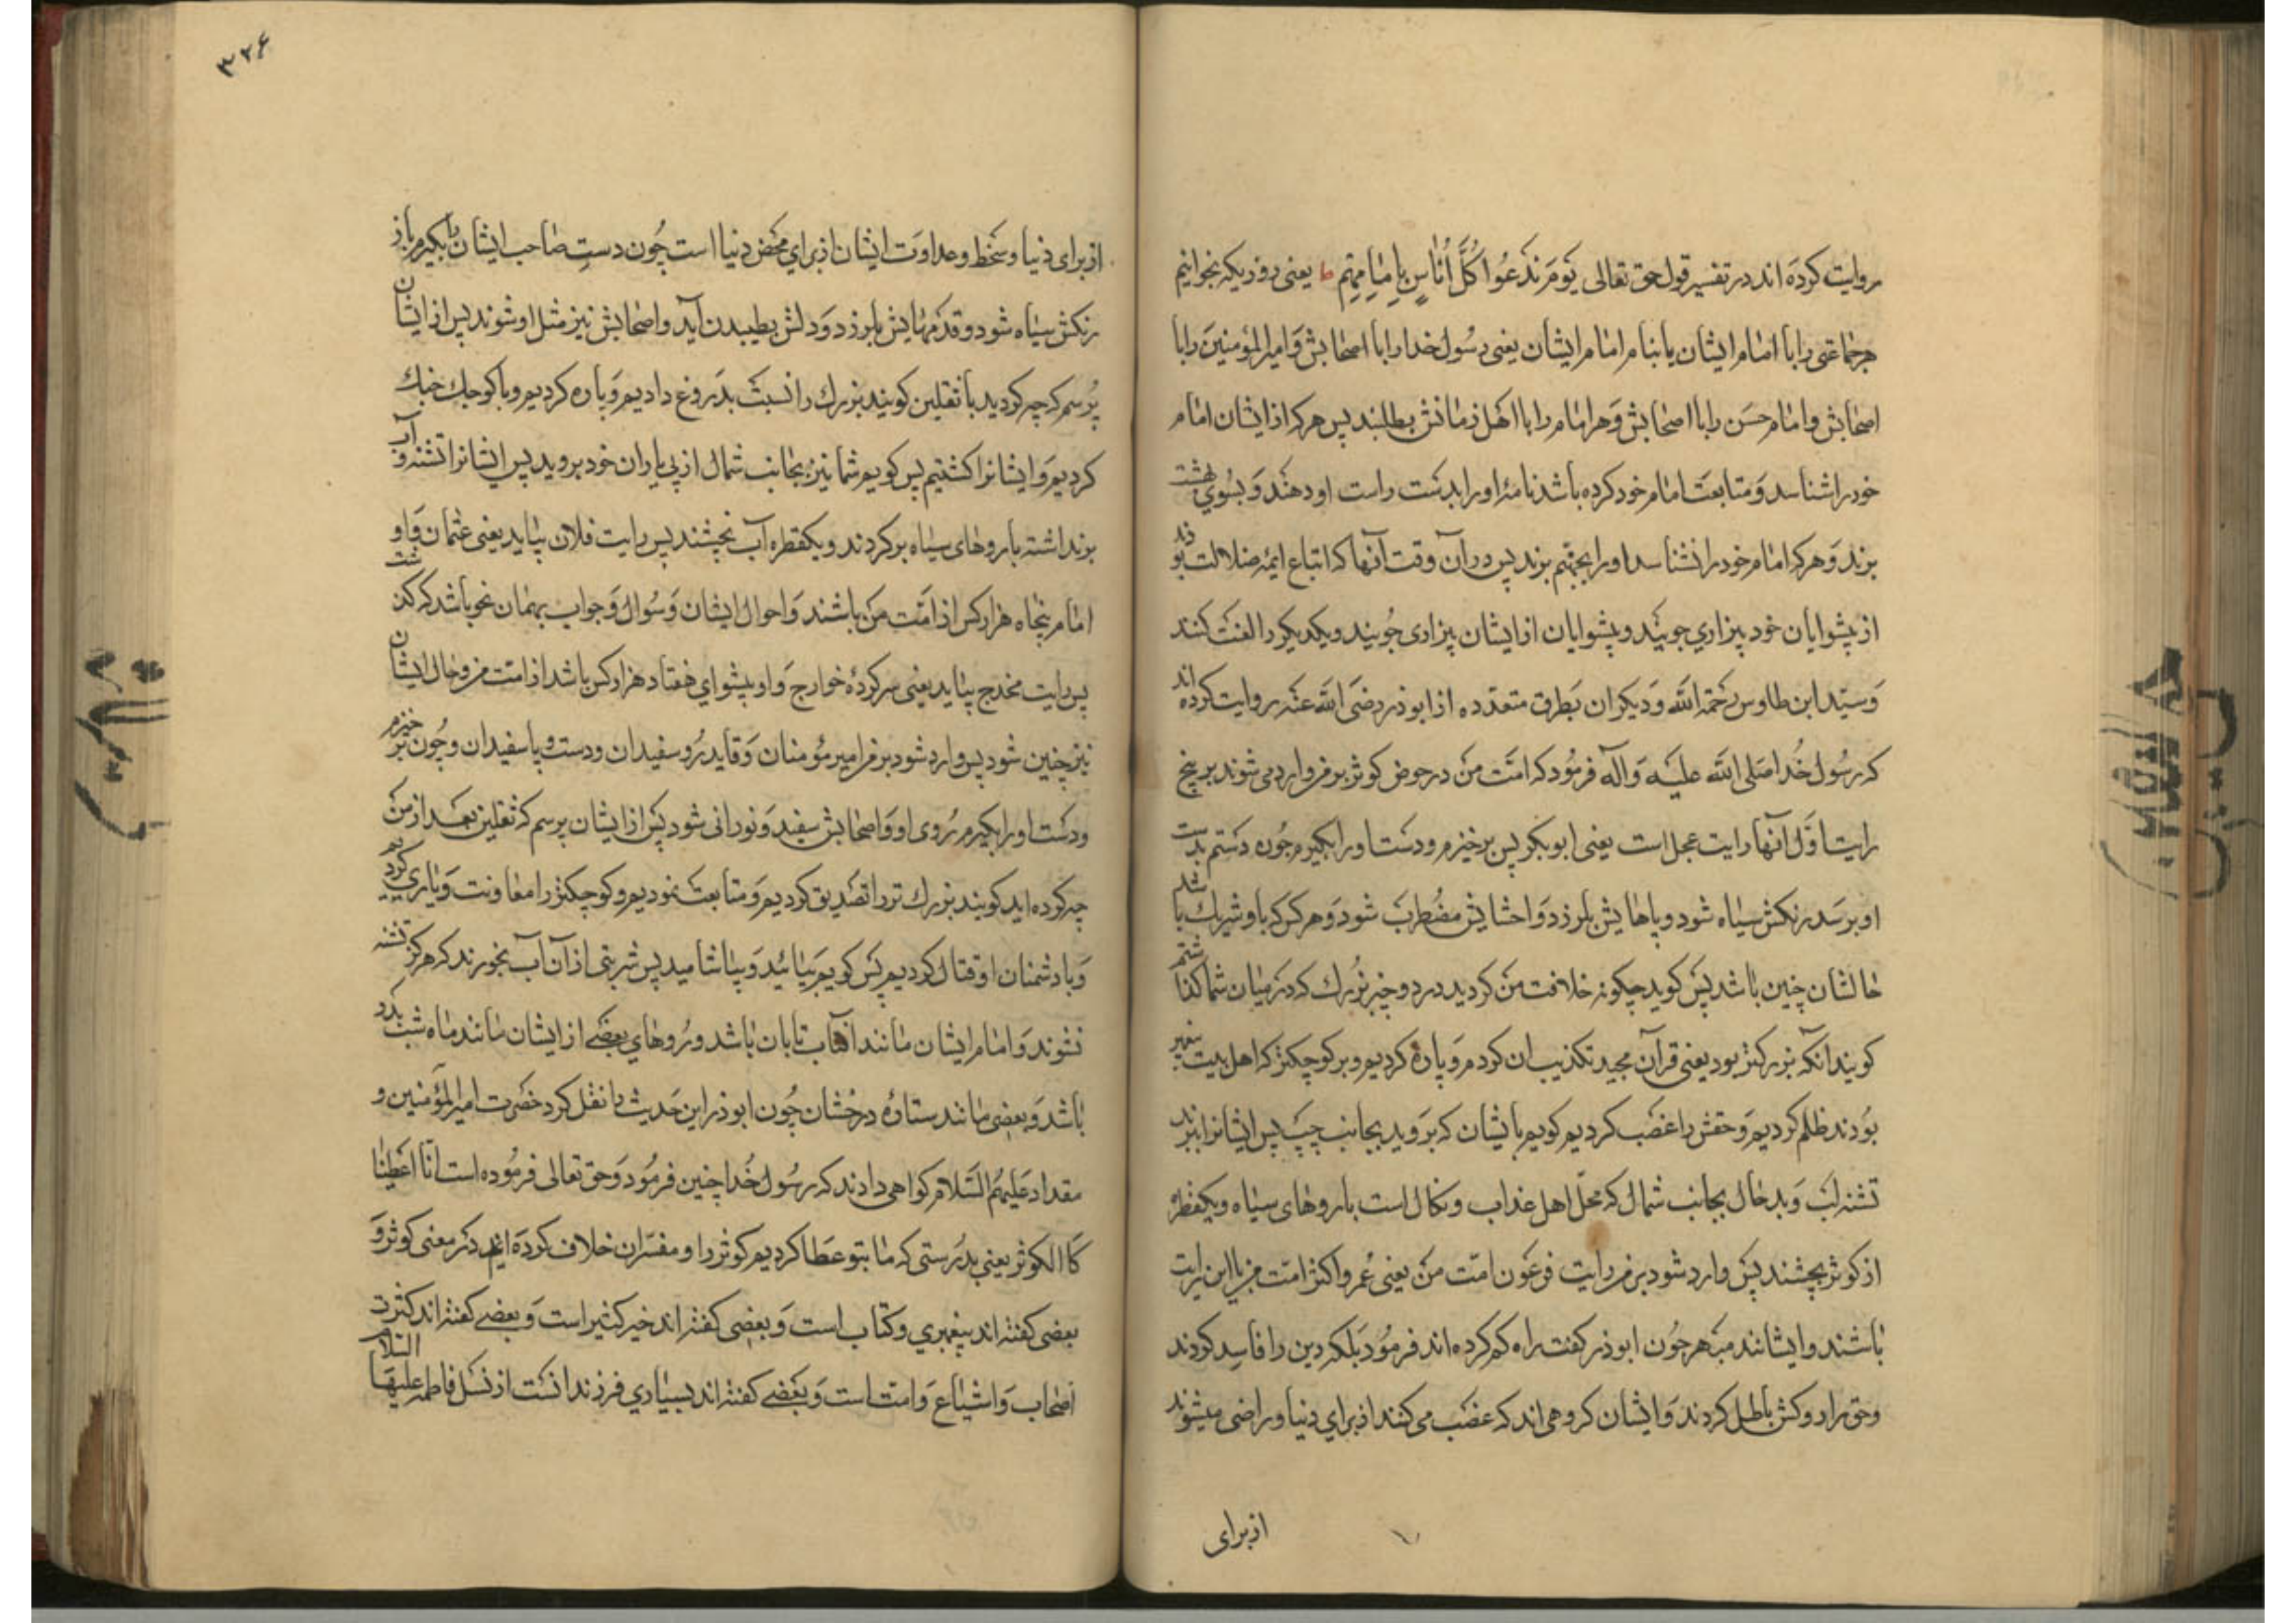 روایت کرده اند در تفسیر قول حق تعالی یَومَ نَدعُوا کُلَّ أُناسٍ بِاِمامِهِم یعنی روزیکه بخوانیم
هر جماعتی را با امام ایشان یا بنام امام ایشان یعنی رسول خدا را با اصحابش و امیرالمؤمنین را با
اصحابش و امام حسن را با اصحابش و هر امام را با اهل زمانش بطلبند پس هر که از ایشان امام
خود را شناسد و متابعت امام خود کرده باشد نامهٔ او را بدست راست او دهند و بسوی بهشت
برند و هر که امام خود را نشناسد او را بجهنم برند پس در آن وقت آنها که اتباع ایمهٔ ضلالت بودند
از پیشوایان خود بیزاری جویند و پیشوایان از ایشان بیزاری جویند و یکدیگر را لعنت کنند
و سید ابن طاوس رحمه الله و دیگران بطرق متعدده از ابوذر رضی الله عنه روایت کرده اند
که رسول خدا صلی الله علیه و آله فرمود که امت من در حوض کوثر بر من وارد می شوند بر پنج
رایت اول آنها رایت عجل است یعنی ابوبکر پس برخیزم و دست او را بگیرم چون دستم بدست
او برسد رنکش سیاه شود و پاهایش بلرزد و احشایش مضطرب شود و هر کس که با او شریک باشد
حالشان چنین باشد پس گوید چگونه خلافت من کردید در دو چیز بزرگ که در میان شما گذاشتم
گویند آنکه بزرگتر بود یعنی قرآن مجید تکذیب ان کردم و پاره کردیم و بر کوچکتر که اهل بیت پیغمبر
بودند ظلم کردیم و حقش را غصب کردیم گویم بایشان که بروید بجانب چپ پس ایشانرا ببرند
تشنه لب و بد حال بجانب شمال که محل اهل عذاب و نکال است با روهای سیاه و یکقطره
از کوثر بچشند پس وارد شود بر من رایت فرعون امت من یعنی عمر و اکثر امت من با این رایت
باشند و ایشانند مبهرجون ابوذر گفت راه گم کرده اند فرمود بلکه دین را فاسد کردند
و حق را دوکش باطل کردند و ایشان گروهی اند که غضب می کنند از برای دنیا و راضی میشوند
از برای
۳۲۶
از برای دنیا و سخط و عداوت ایشان از برای محض دنیا است چون دست صاحب ایشان را بگیرم باز
رنکش سیاه شود و قدمهایش بلرزد و دلش بطپیدن آید و اصحابش نیز مثل او شوند پس از ایشان
پرسم که چه کردید با ثقلین گویند بزرک را نسبت بدروغ دادیم و پاره کردیم و با کوچک جنک
کردیم و ایشانرا کشتیم پس گویم شما نیز بجانب شمال از پی یاران خود بروید پس ایشانرا تشنه و آب
برنداشته با روهای سیاه برگردند و یکقطره آب نچشند پس رایت فلان بیاید یعنی عثمان و او
امام پنجاه هزار کس از امت من باشند و احوال ایشان و سؤال و جواب بهمان نحو باشد که گذشت
پس رایت مخدج بیاید یعنی سرکردهٔ خوارج و او پیشوای هفتاد هزار کس باشد از امت من و حال ایشان
نیز چنین شود پس وارد شود بر من امیر مؤمنان و قاید رو سفیدان و دست و پا سفیدان و چون برخیزم
و دست او را بگیرم روی او و اصحابش سفید و نورانی شود پس از ایشان پرسم که ثقلین بعد از من
چه کرده اید گویند بزرک تر را تصدیق کردیم و متابعت نمودیم و کوچکتر را معاونت و یاری کردیم
و با دشمنان او قتال کردیم پس گویم بیائید و بیاشامید پس شربتی از آن آب بخورند که هرگز تشنه
نشوند و امام ایشان مانند آفتاب تابان باشد و روهای بعضی از ایشان مانند ماه شب بدر
باشد و بعضی مانند ستارهٔ درخشان چون ابوذر این حدیث را نقل کرد حضرت امیرالمؤمنین و
مقداد علیهم السلام گواهی دادند که رسول خدا چنین فرمود و حق تعالی فرموده است انا اعطینا
کا الکوثر یعنی بدرستی که ما بتو عطا کردیم کوثر را و مفسران خلاف کرده اند در معنی کوثر و
بعضی گفته اند پیغمبری و کتاب است و بعضی گفته اند خیر کثیر است و بعضی گفته اند کثرت
اصحاب و اشیاع و امت است و بعضی گفته اند بسیاری فرزندانست از نسل فاطمه علیها السلام